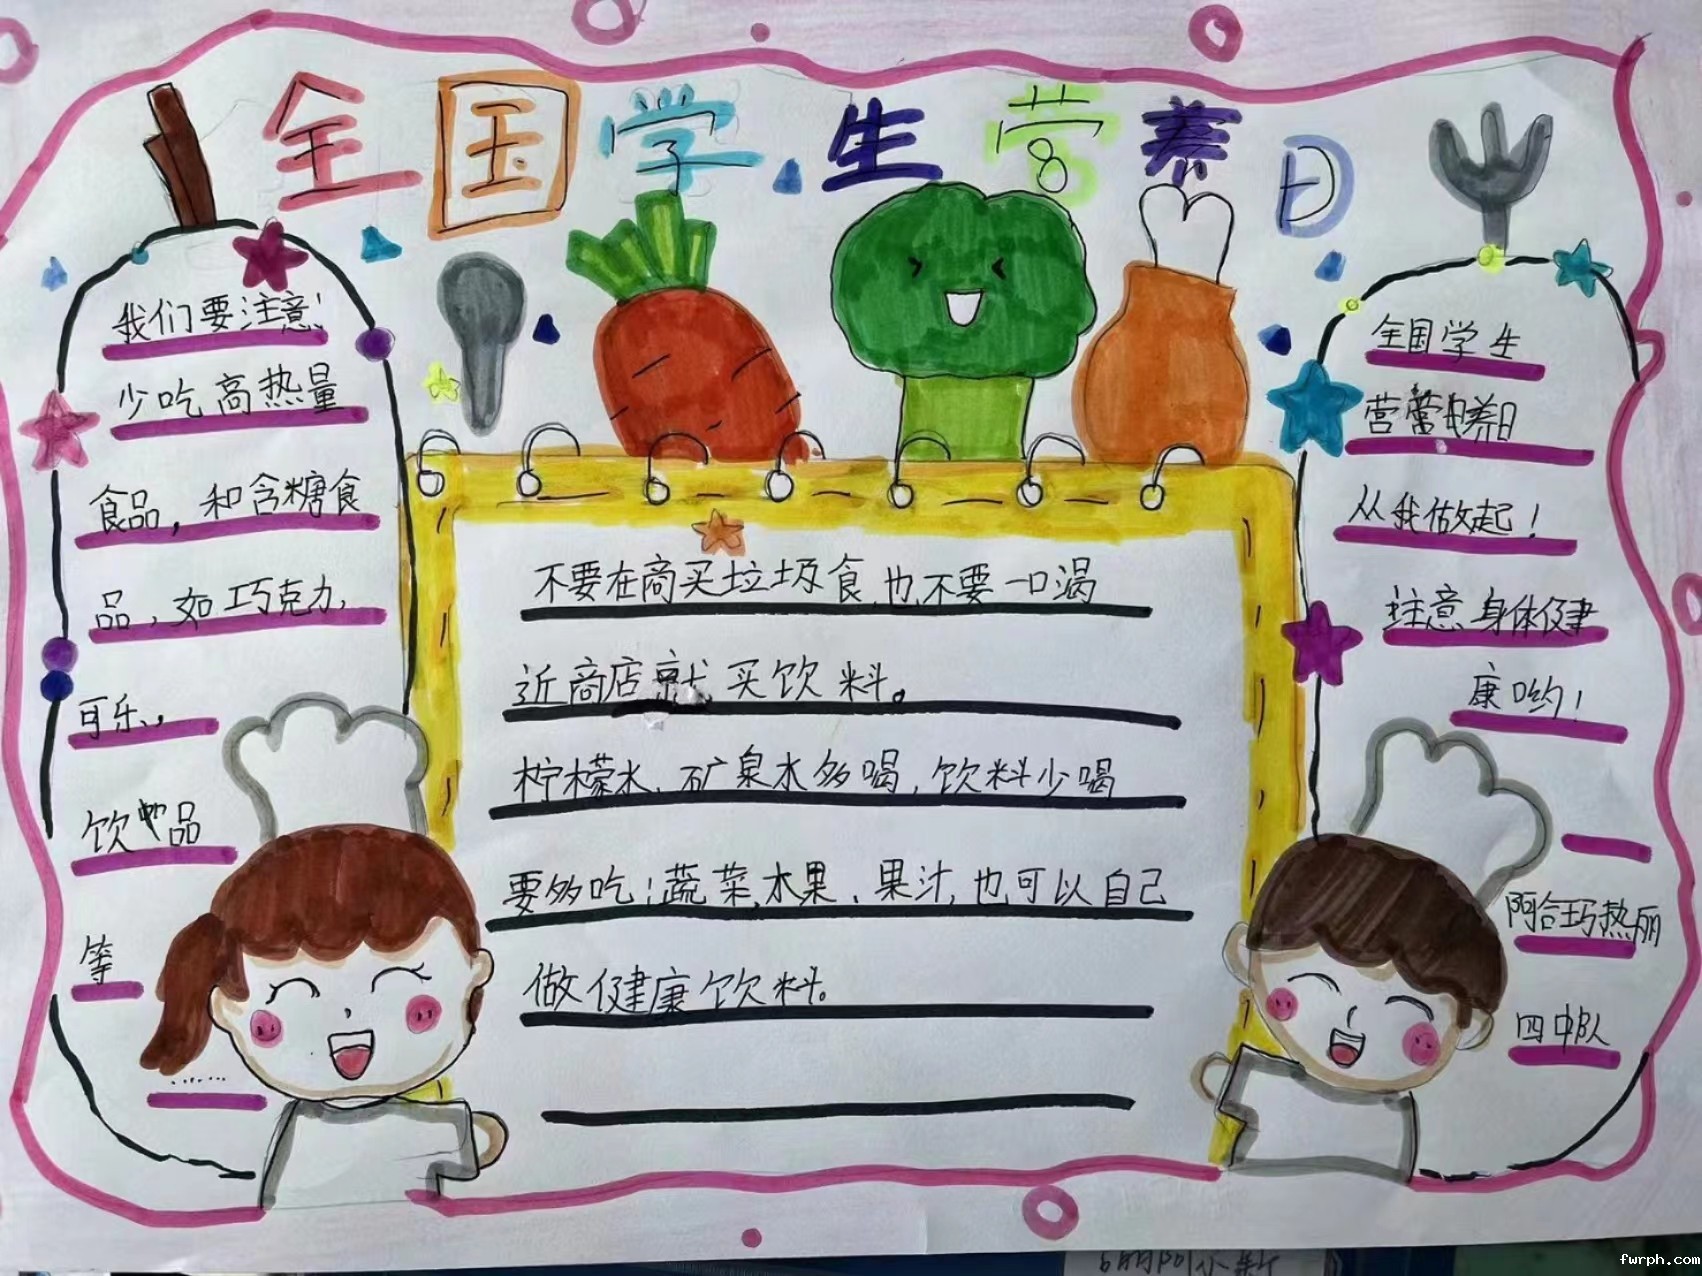 全国学生营养日
我们要注意！
少吃高热量
食品，和含糖食
品，如巧克力，
可乐、
饮品
等
……
不要在商买垃圾食，也不要一口渴
近商店就买饮料。
柠檬水、矿泉水多喝，饮料少喝
要多吃！蔬菜，水果、果汁，也可以自己
做健康饮料。
全国学生
营养日
从我做起！
注意身体健
康哟！
阿合巧热丽
四中队
fwrph.com